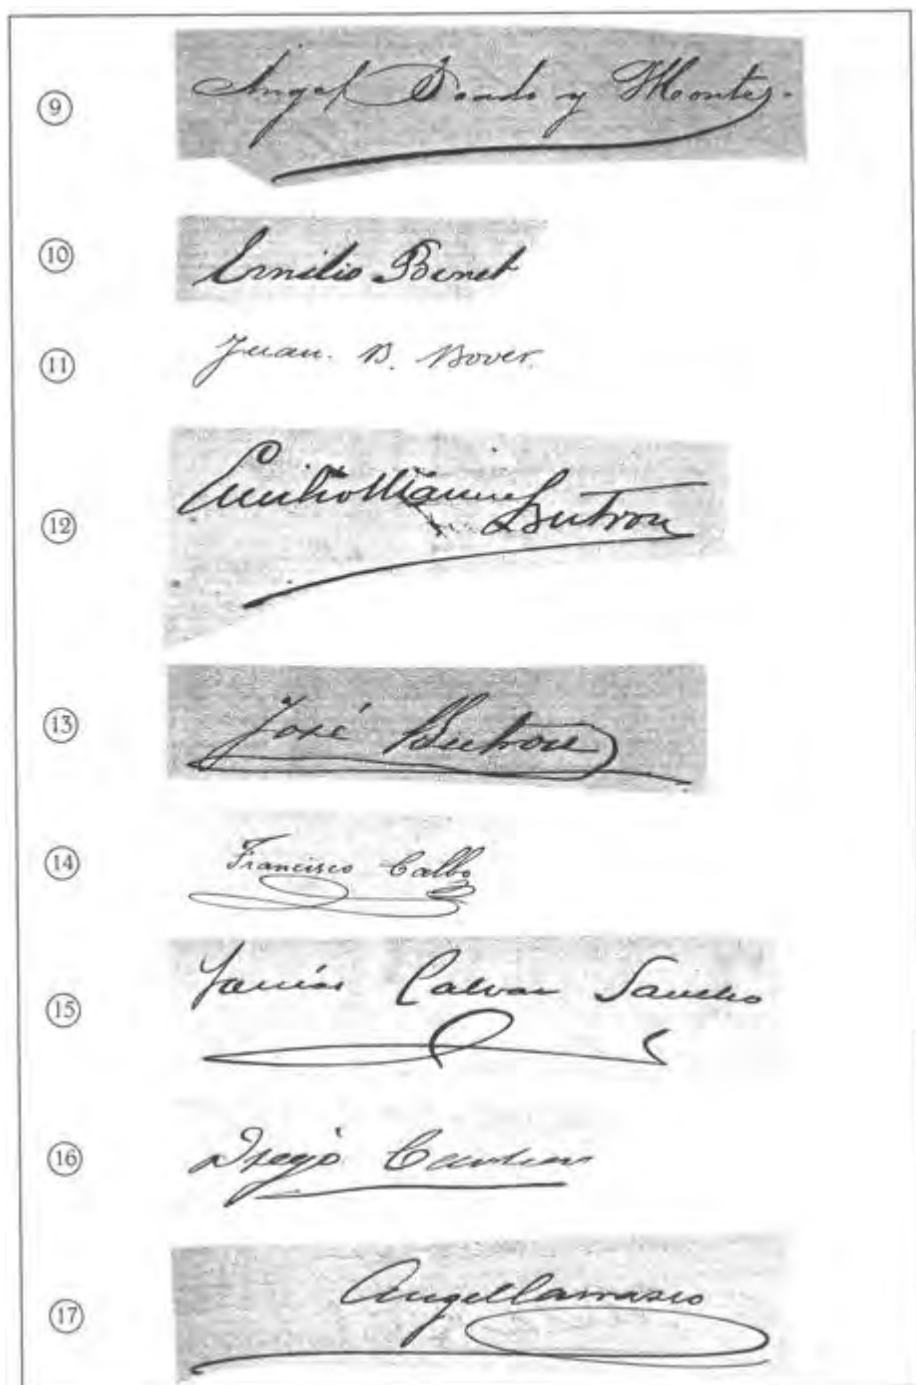 9
Angel y Montes.
10
Emilio Benet
11
Juan. B. Bover.
12
Emilio Butron
13
José Butron
14
Francisco Calbo
15
Calvan Sancho
16
Diego
17
Angel Carrasco